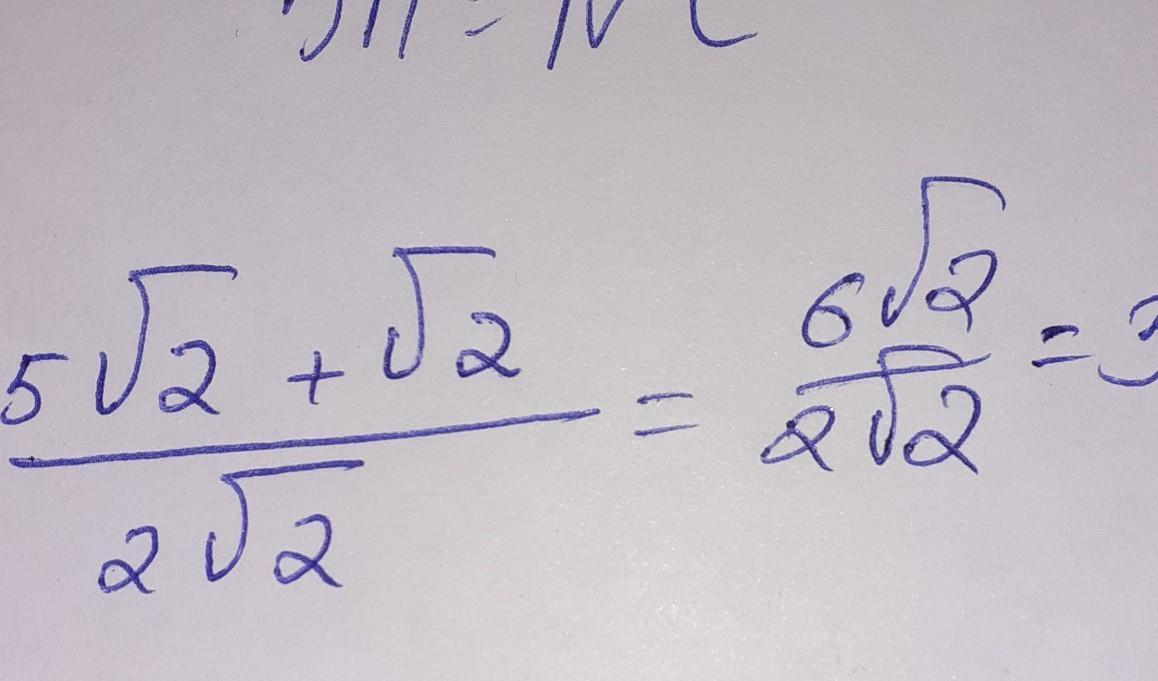 5√2 + √2 / 2√2 = 6√2 / 2√2 = 3